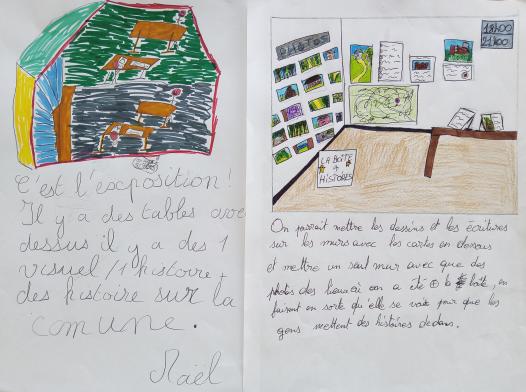 C'est l'exposition!
Il y a des tables avec
dessus il y a des 1
visuel/1 histoire,
des histoire sur la
comune.
Naël
PHOTOS
18h00
21h00
LA BOÎTE
À
HISTOIRES
On pourrait mettre les dessins et les écritures
sur les murs avec les cartes en dessous
et mettre un seul mur avec que des
photos des lieux où on a été + la boîte, en
faisant en sorte qu'elle se voit pour que les
gens mettent des histoires dedans.